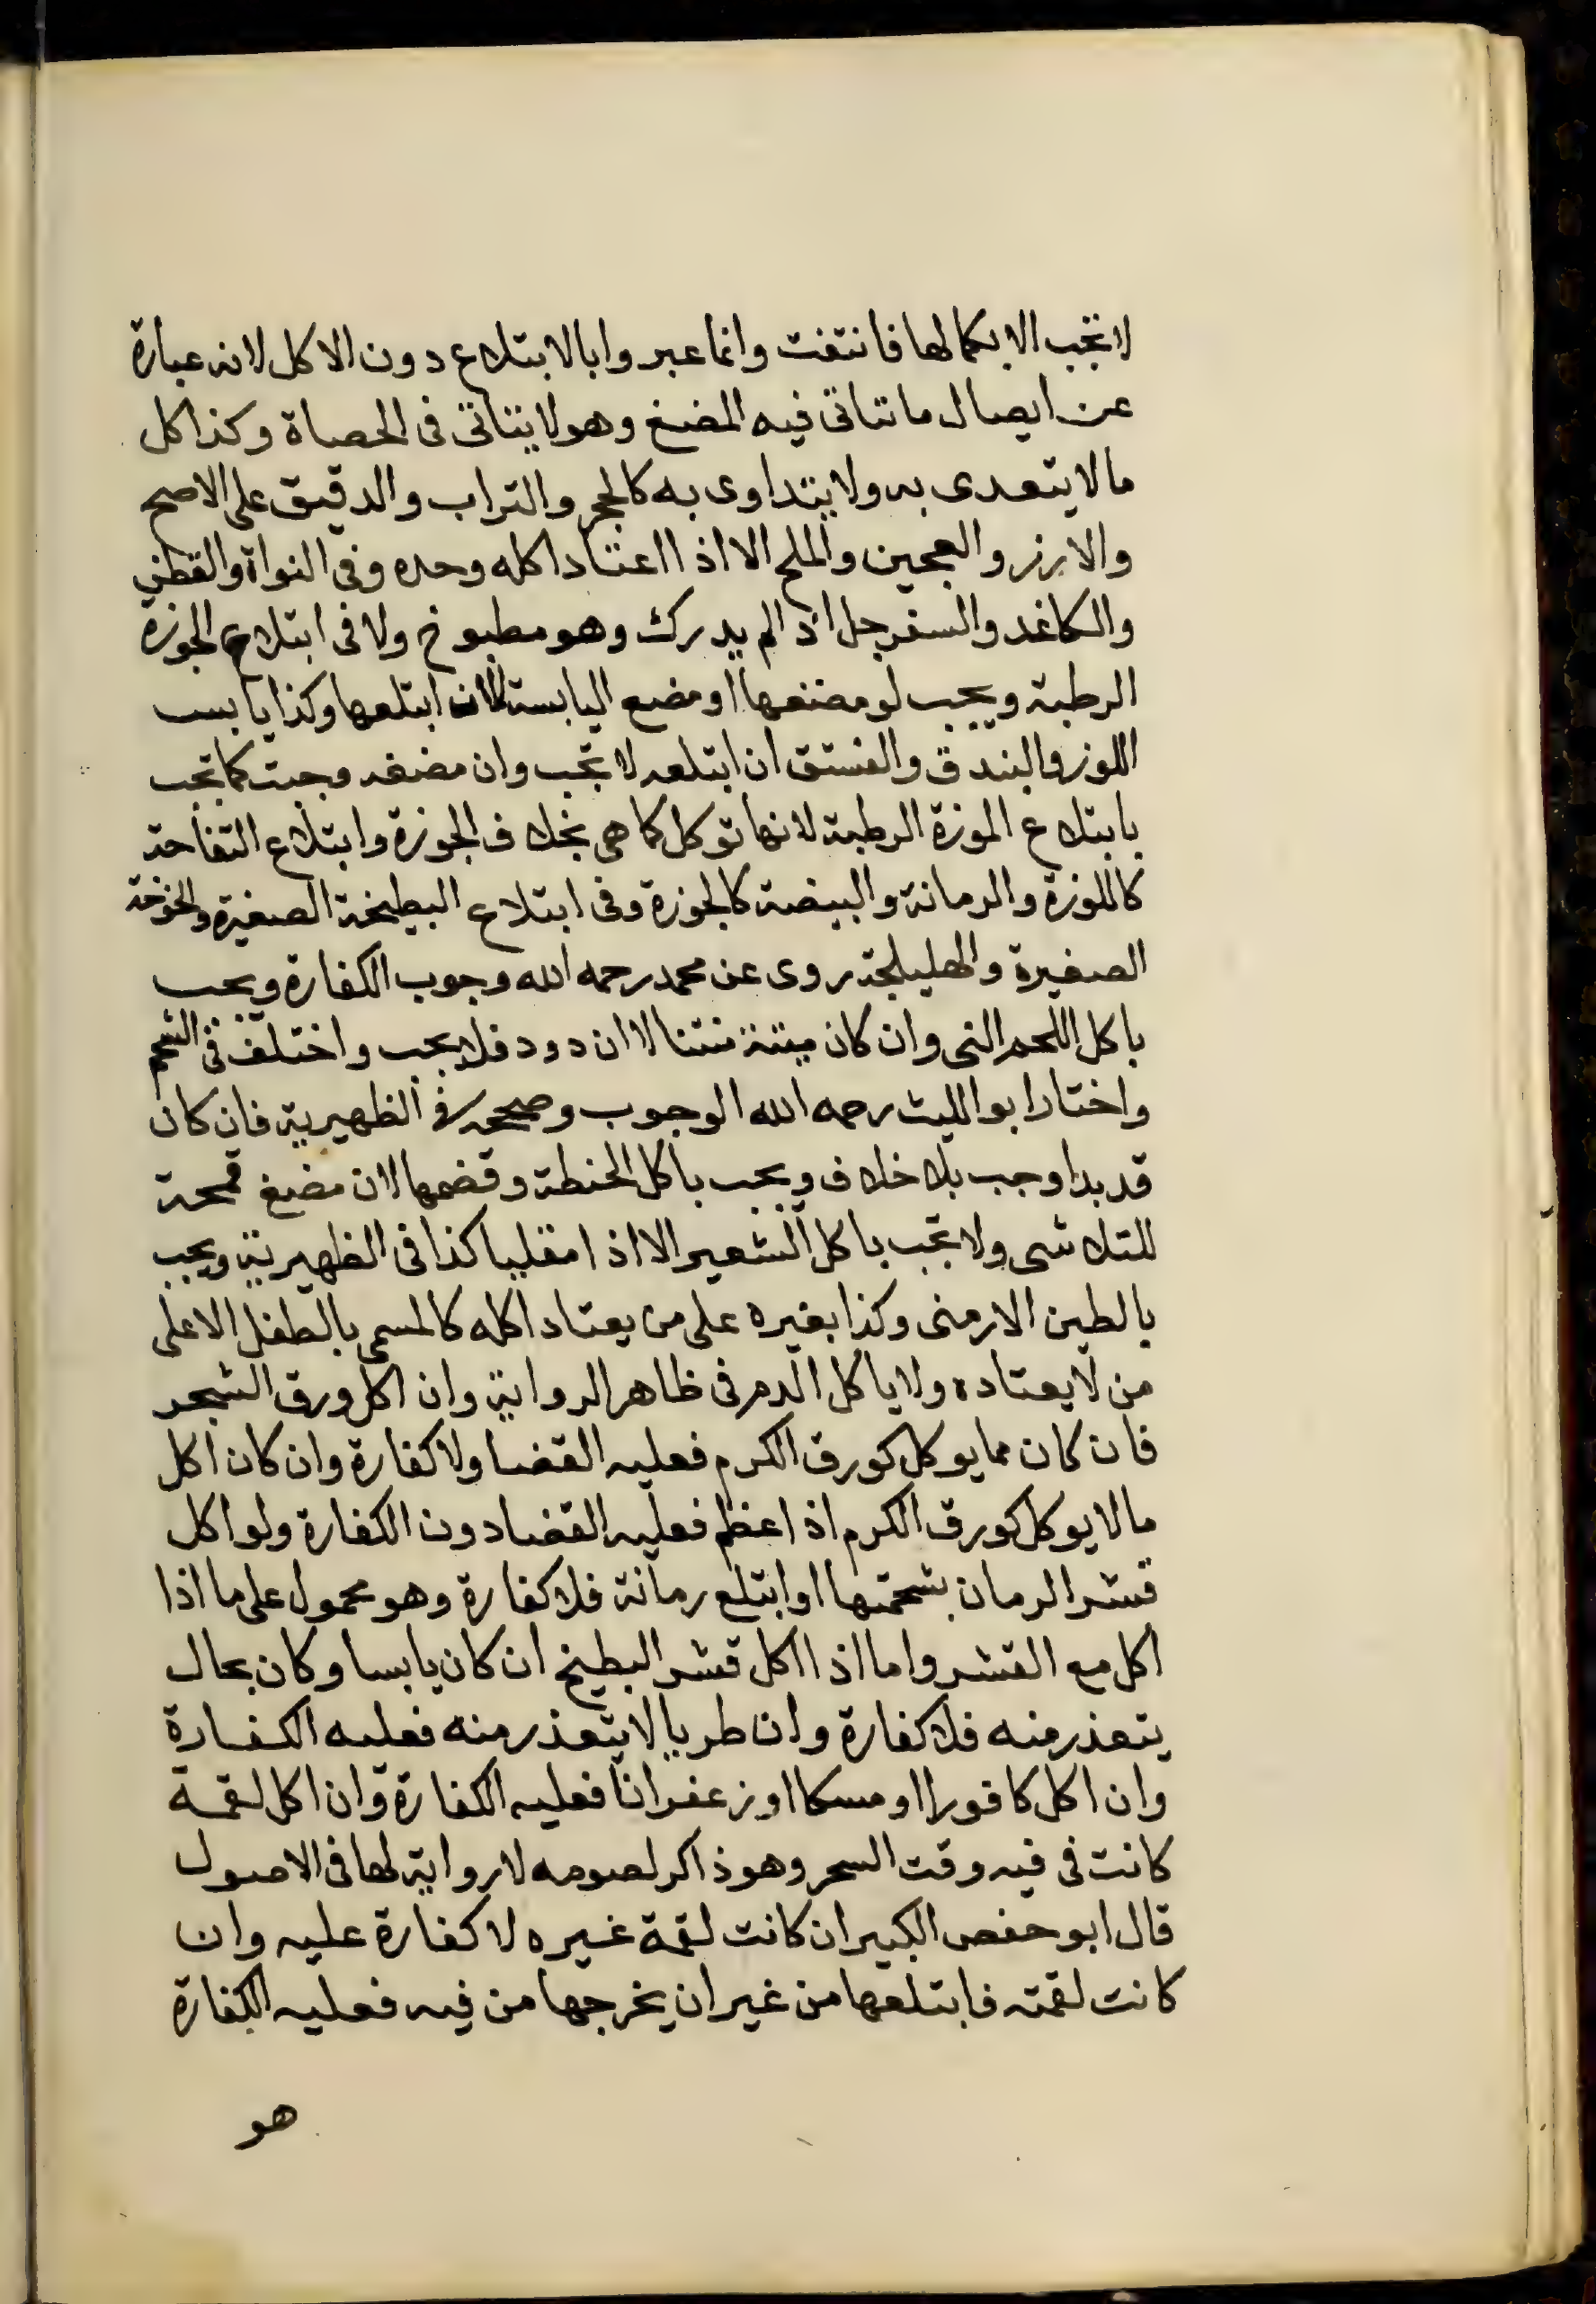 لا تجب الا بكمالها فانتفت وانما عبروا بالابتلاع دون الاكل لانه عبارة
عن ايصال ما تتاتى فيه المضغ وهو لا يتاتى فى الحصاة وكذا كل
ما لا يتعدى به ولا يتداوى به كالحجر والتراب والدقيق على الاصح
والارز والعجين والملح الا اذا اعتاد اكله وحده وفى النواة والقطن
والكاغد والسفرجل اذا لم يدرك وهو مطبوخ ولا فى ابتلاع الجوزة
الرطبة ويجب لو مضغها او مضغ اليابسة لا ان ابتلعها وكذا يابس
اللوز والبندق والفستق ان ابتلعه لا تجب وان مضغه وجبت كما تجب
بابتلاع الموزة الرطبة لانها توكل كما هى بخلاف الجوزة وابتلاع التفاحة
كاللوزة والرمانة والبيضة كالجوزة وفى ابتلاع البطيخة الصغيرة والخوخة
الصغيرة والهليلجة روى عن محمد رحمه الله وجوب الكفارة ويجب
باكل اللحم النى وان كان ميتة منتنا لا ان دود فلا يجب واختلف فى الشحم
واختار ابو الليث رحمه الله الوجوب وصححه فى الظهيرية فان كان
قديدا وجب بلا خلاف ويجب باكل الحنطة وقضمها لا ان مضغ قمحة
للتلاشى ولا تجب باكل الشعير الا اذا مقليا كذا فى الظهيرية ويجب
بالطين الارمنى وكذا بغيره على من يعتاد اكله كالمسمى بالطفل لا على
من لا يعتاده ولا ياكل الدم فى ظاهر الرواية وان اكل ورق الشجر
فان كان مما يوكل كورق الكرم فعليه القضا ولا كفارة وان كان اكل
مالا يوكل كورق الكرم اذا عظم فعليه القضا دون الكفارة ولو اكل
قشر الرمان بشحمتها او ابتلع رمانة فلا كفارة وهو محمول على ما اذا
اكل مع القشر واما اذا اكل قشر البطيخ ان كان يابسا وكان بحال
يتعذر منه فلا كفارة وان طريا لا يتعذر منه فعليه الكفارة
وان اكل كافورا او مسكا او زعفرانا فعليه الكفارة وان اكل لقمة
كانت فى فيه وقت السحر وهو ذاكر لصومه لا رواية لها فى الاصول
قال ابو حفص الكبير ان كانت لقمة غيره لا كفارة عليه وان
كانت لقمته فابتلعها من غير ان يخرجها من فيه فعليه الكفارة
هو